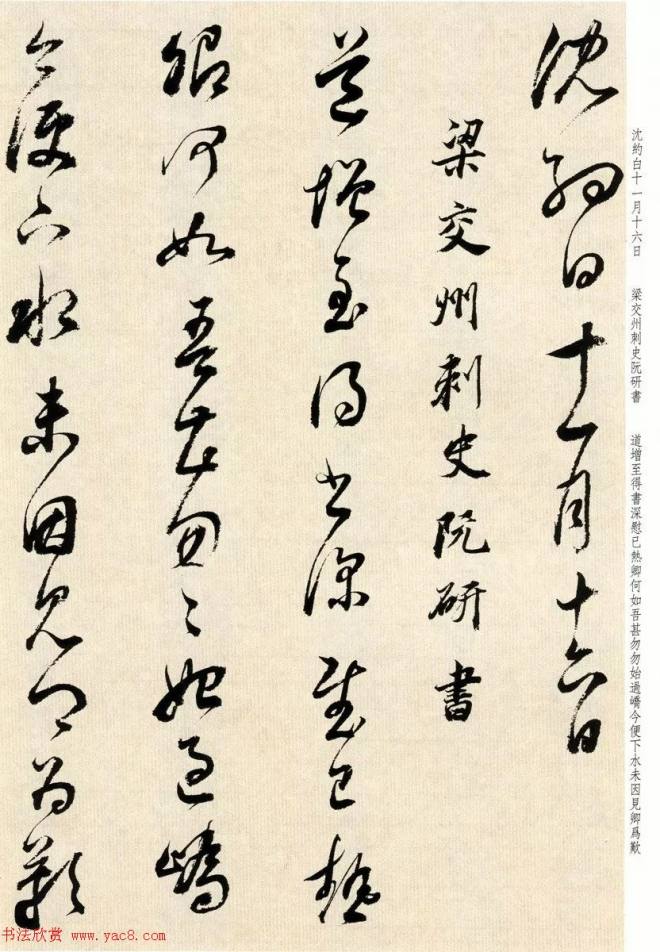 沈約白十一月十六日
梁交州刺史阮研書
道增至得書深慰已熱
卿何如吾甚勿〻始過嶠
今便下水未因見卿為歎
沈約白十一月十六日 梁交州刺史阮研書 道增至得書深慰已熱卿何如吾甚勿勿始過嶠今便下水未因見卿爲歎
书法欣赏 www.yac8.com